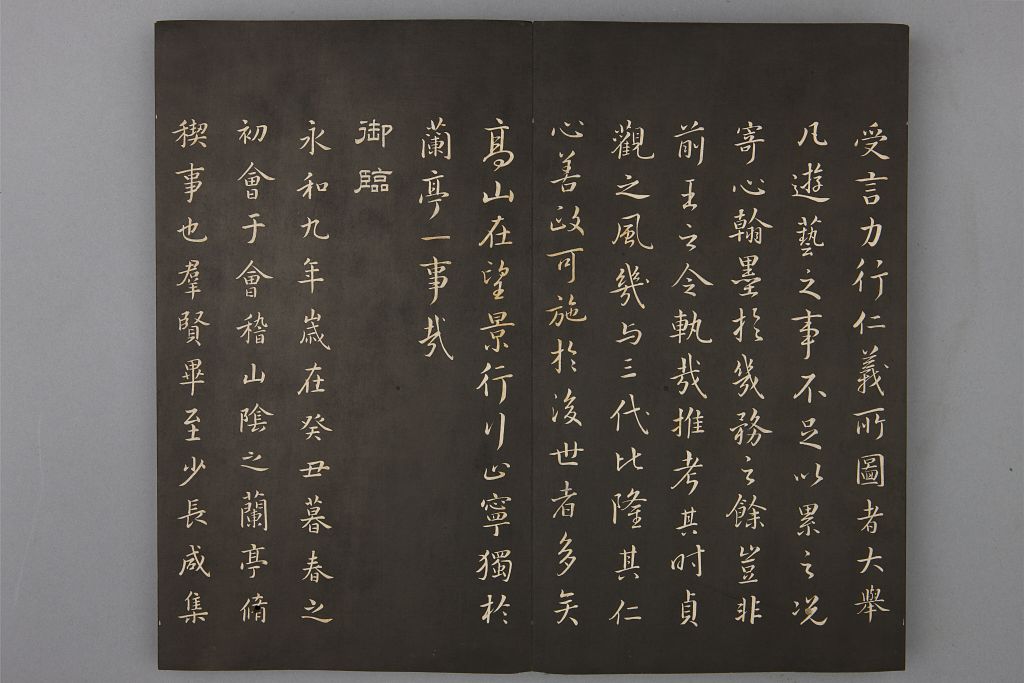 受言力行仁義所圖者大舉
凡遊藝之事不足以累之况
寄心翰墨於幾務之餘豈非
前王之令軌哉推考其时貞
觀之風幾与三代比隆其仁
心善政可施於後世者多矣
高山在望景行行止寧獨於
蘭亭一事哉
御臨
永和九年歲在癸丑暮春之
初會于會稽山陰之蘭亭脩
稧事也羣賢畢至少長咸集